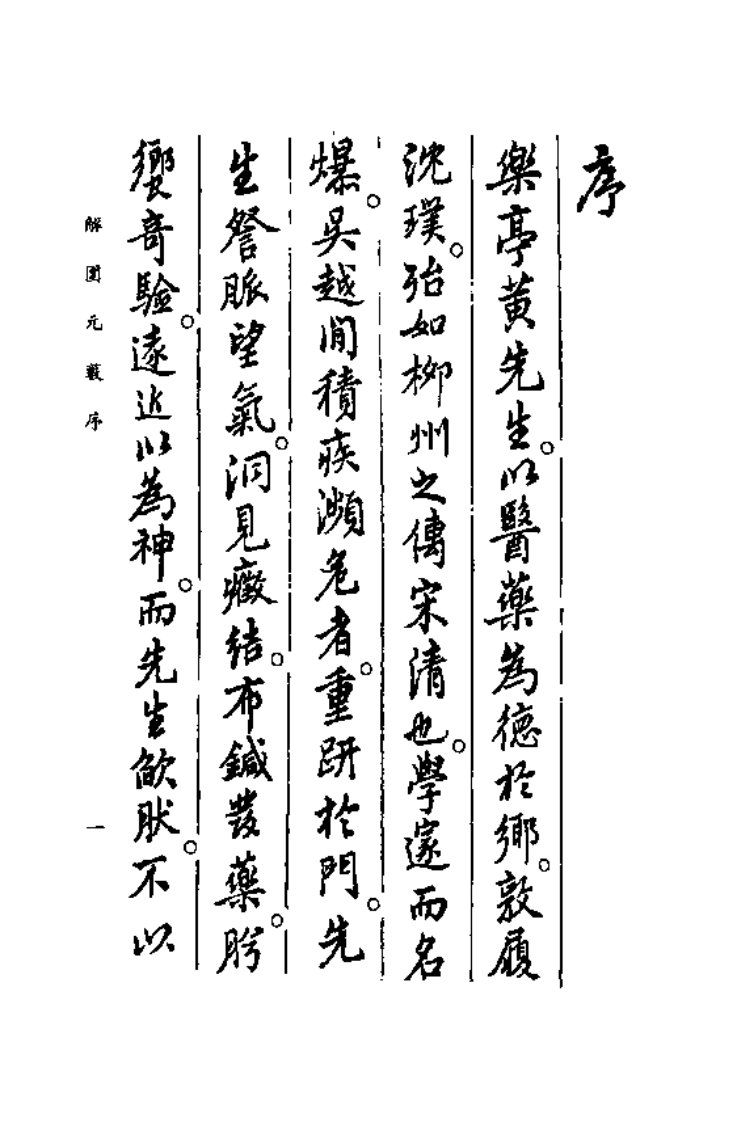 序
樂亭黄先生。以醫藥為德於鄉。敦履
沈璞。殆如柳州之傳宋清也。學邃而名
爆。吳越間積疾瀕危者。重趼於門。先
生詧脈望氣。洞見癥結。布鍼發藥。肹
蠁奇驗。遠近以為神。而先生欿肰。不以
解圍元藪序
一